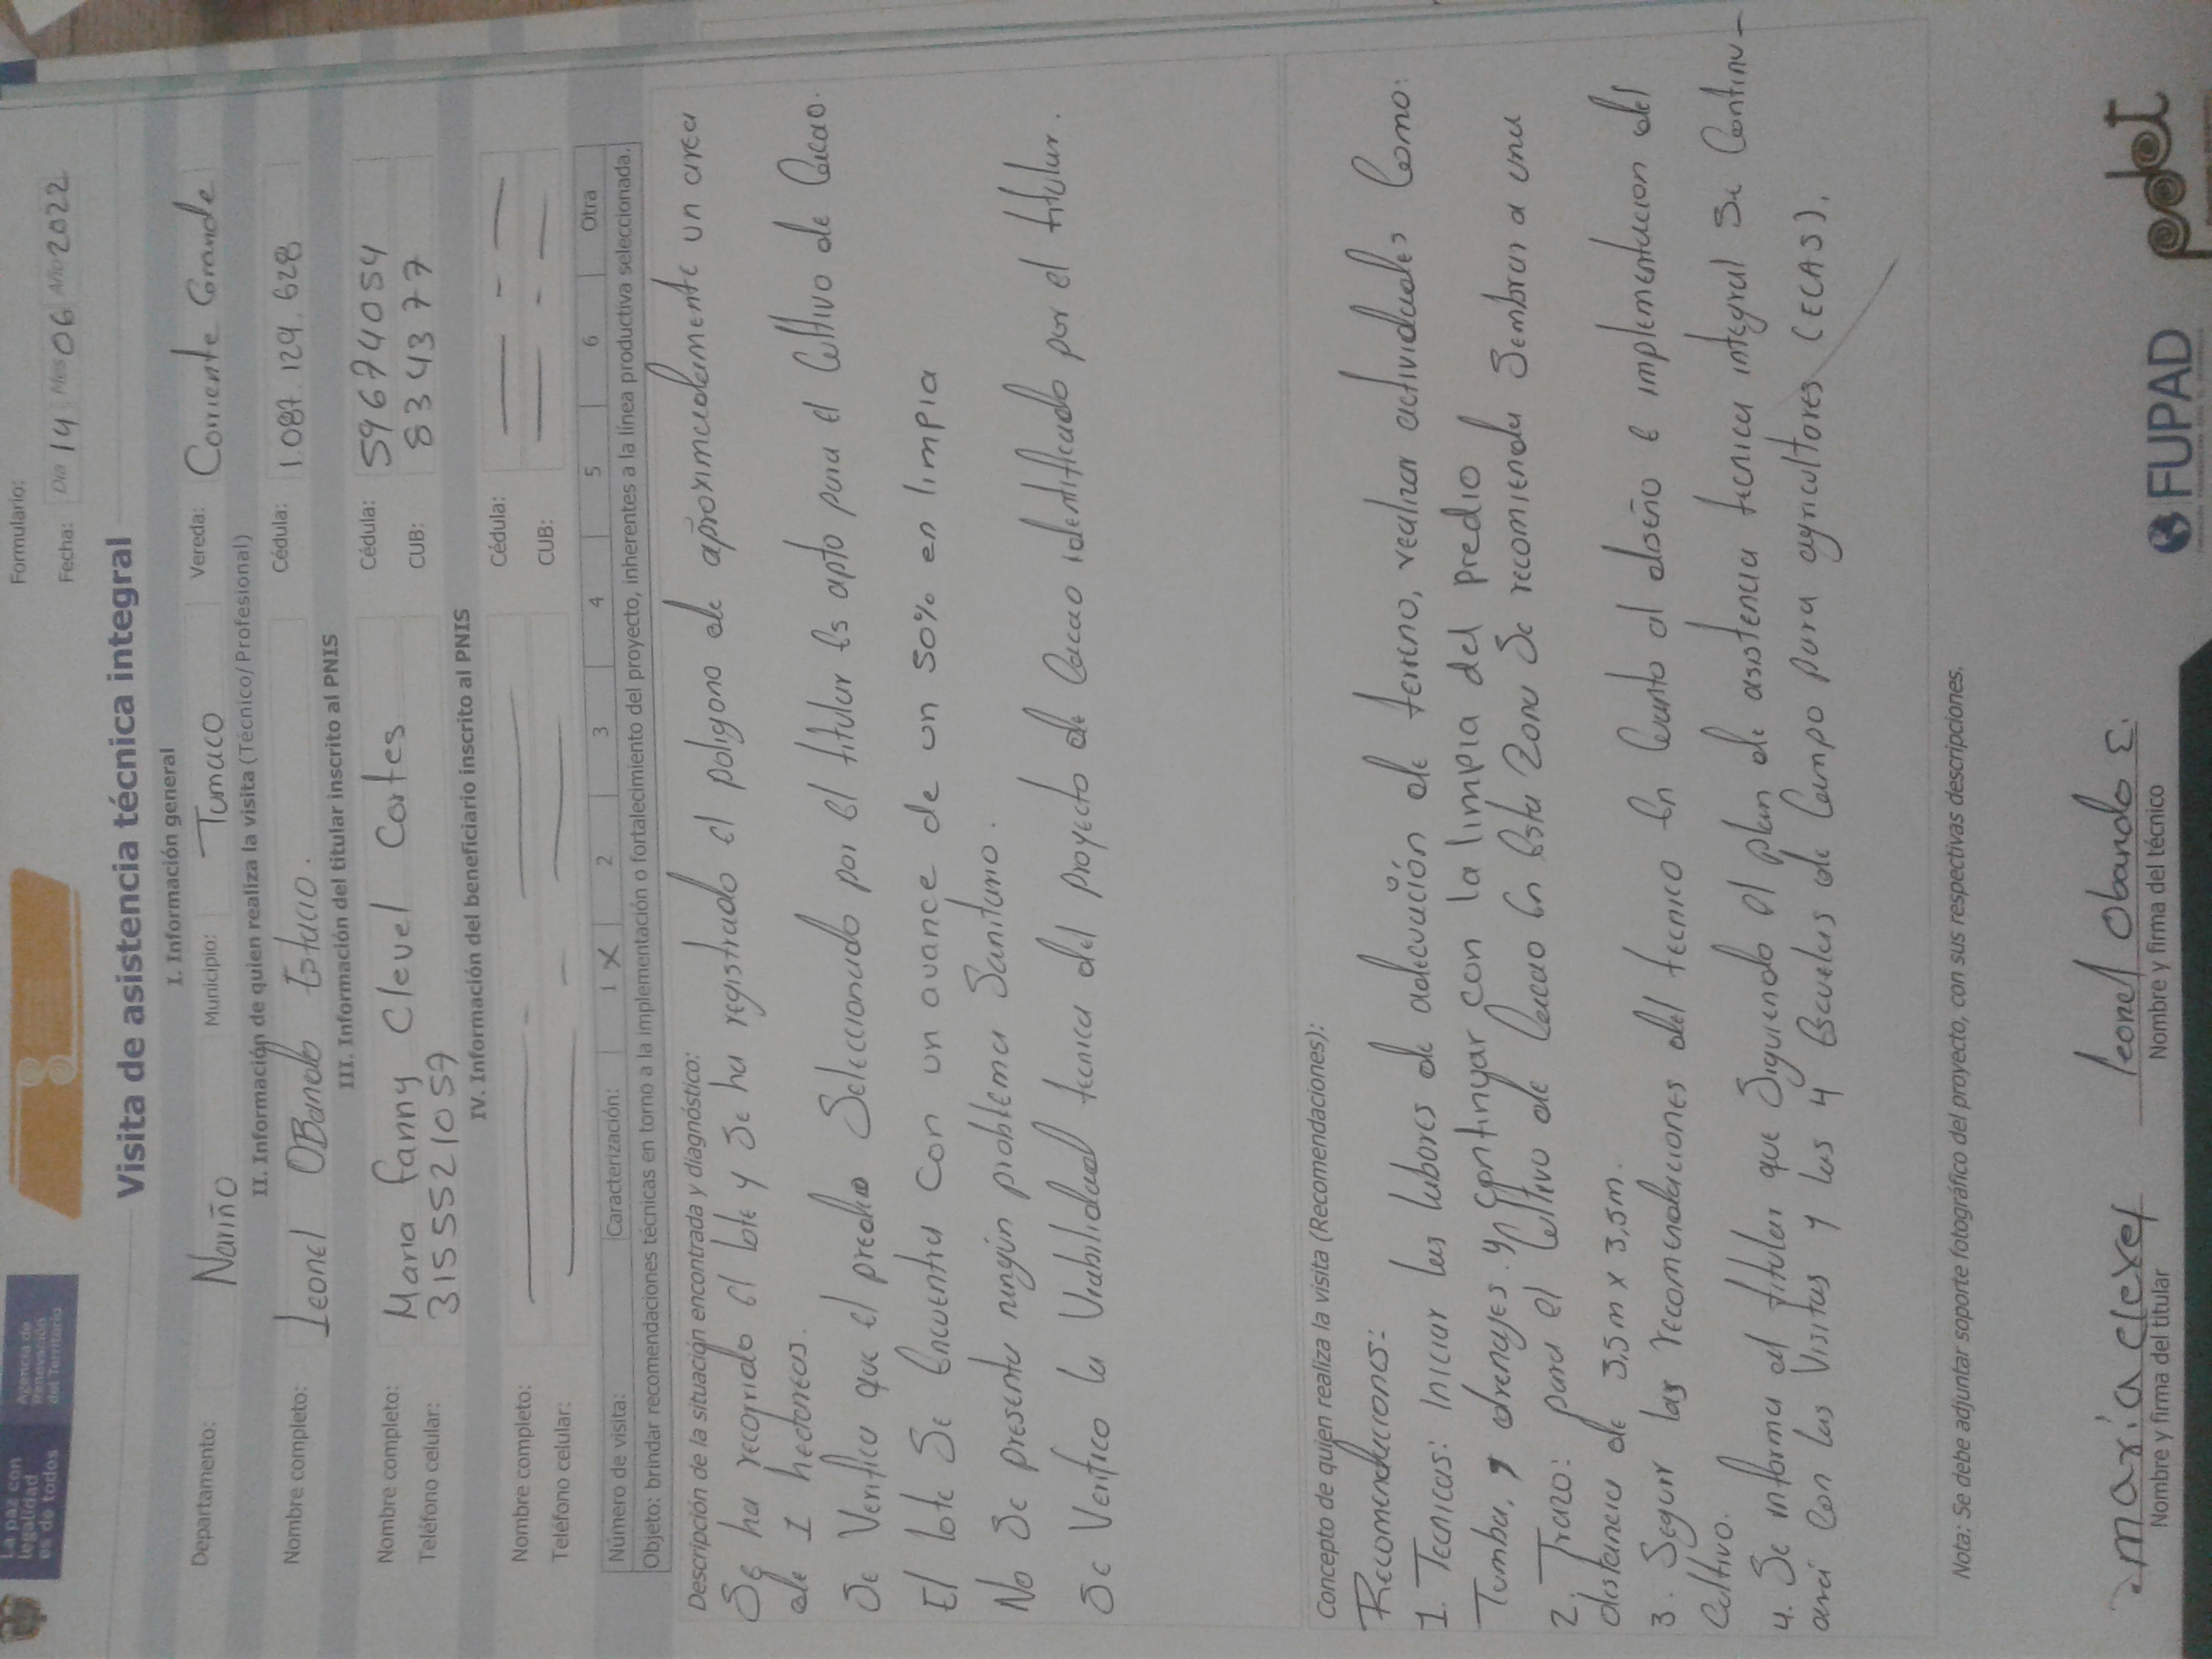 La paz con
legalidad
es de todos
Agencia de
Renovación
del Territorio
Formulario:
Fecha: Día 14 Mes 06 Año 2022
Visita de asistencia técnica integral
I. Información general
Departamento: Nariño Municipio: Tumaco Vereda: Corriente Grande
II. Información de quien realiza la visita (Técnico/Profesional)
Nombre completo: Leonel OBando Estacio. Cédula: 1.087.124.628
III. Información del titular inscrito al PNIS
Nombre completo: Maria fanny Clevel Cortes Cédula: 59674054
Teléfono celular: 3155521057 CUB: 834377
IV. Información del beneficiario inscrito al PNIS
Nombre completo: Cédula:
Teléfono celular: CUB:
Número de visita: Caracterización: 1 X 2 3 4 5 6 Otra
Objeto: brindar recomendaciones técnicas en torno a la implementación o fortalecimiento del proyecto, inherentes a la línea productiva seleccionada.
Descripción de la situación encontrada y diagnóstico:
Se ha recorrido el lote y se ha registrado el poligono de aproximadamente un area
de 1 hectareas.
Se Verifica que el predio Seleccionado por el titular es apto para el Cultivo de Cacao.
El lote Se Encuentra Con un avance de un 50% en limpia
No Se presenta ningún problema Sanitario.
Se Verifico la Viabilidad tecnica del proyecto de Cacao identificado por el titular.
Concepto de quien realiza la visita (Recomendaciones):
Recomendaciones:
1. Tecnicas: Iniciar las labores de adecuación de terreno, realizar actividades Como:
Tumba, y drenajes. y Continuar con la limpia del predio
2. Trazo: para el Cultivo de Cacao En Esta Zona Se recomienda Sembrar a una
distancia de 3,5m x 3,5m.
3. Seguir las recomendaciones del tecnico En Cuanto al diseño e implementacion del
Cultivo.
4. Se informa al titular que Siguiendo el plan de asistencia tecnica integral Se Continu-
ara Con las Visitas y las 4 Escuelas de Campo para agricultores (ECAS).
Nota: Se debe adjuntar soporte fotográfico del proyecto, con sus respectivas descripciones.
maria clexef leonel Obando E.
Nombre y firma del titular Nombre y firma del técnico
FUPAD pdet